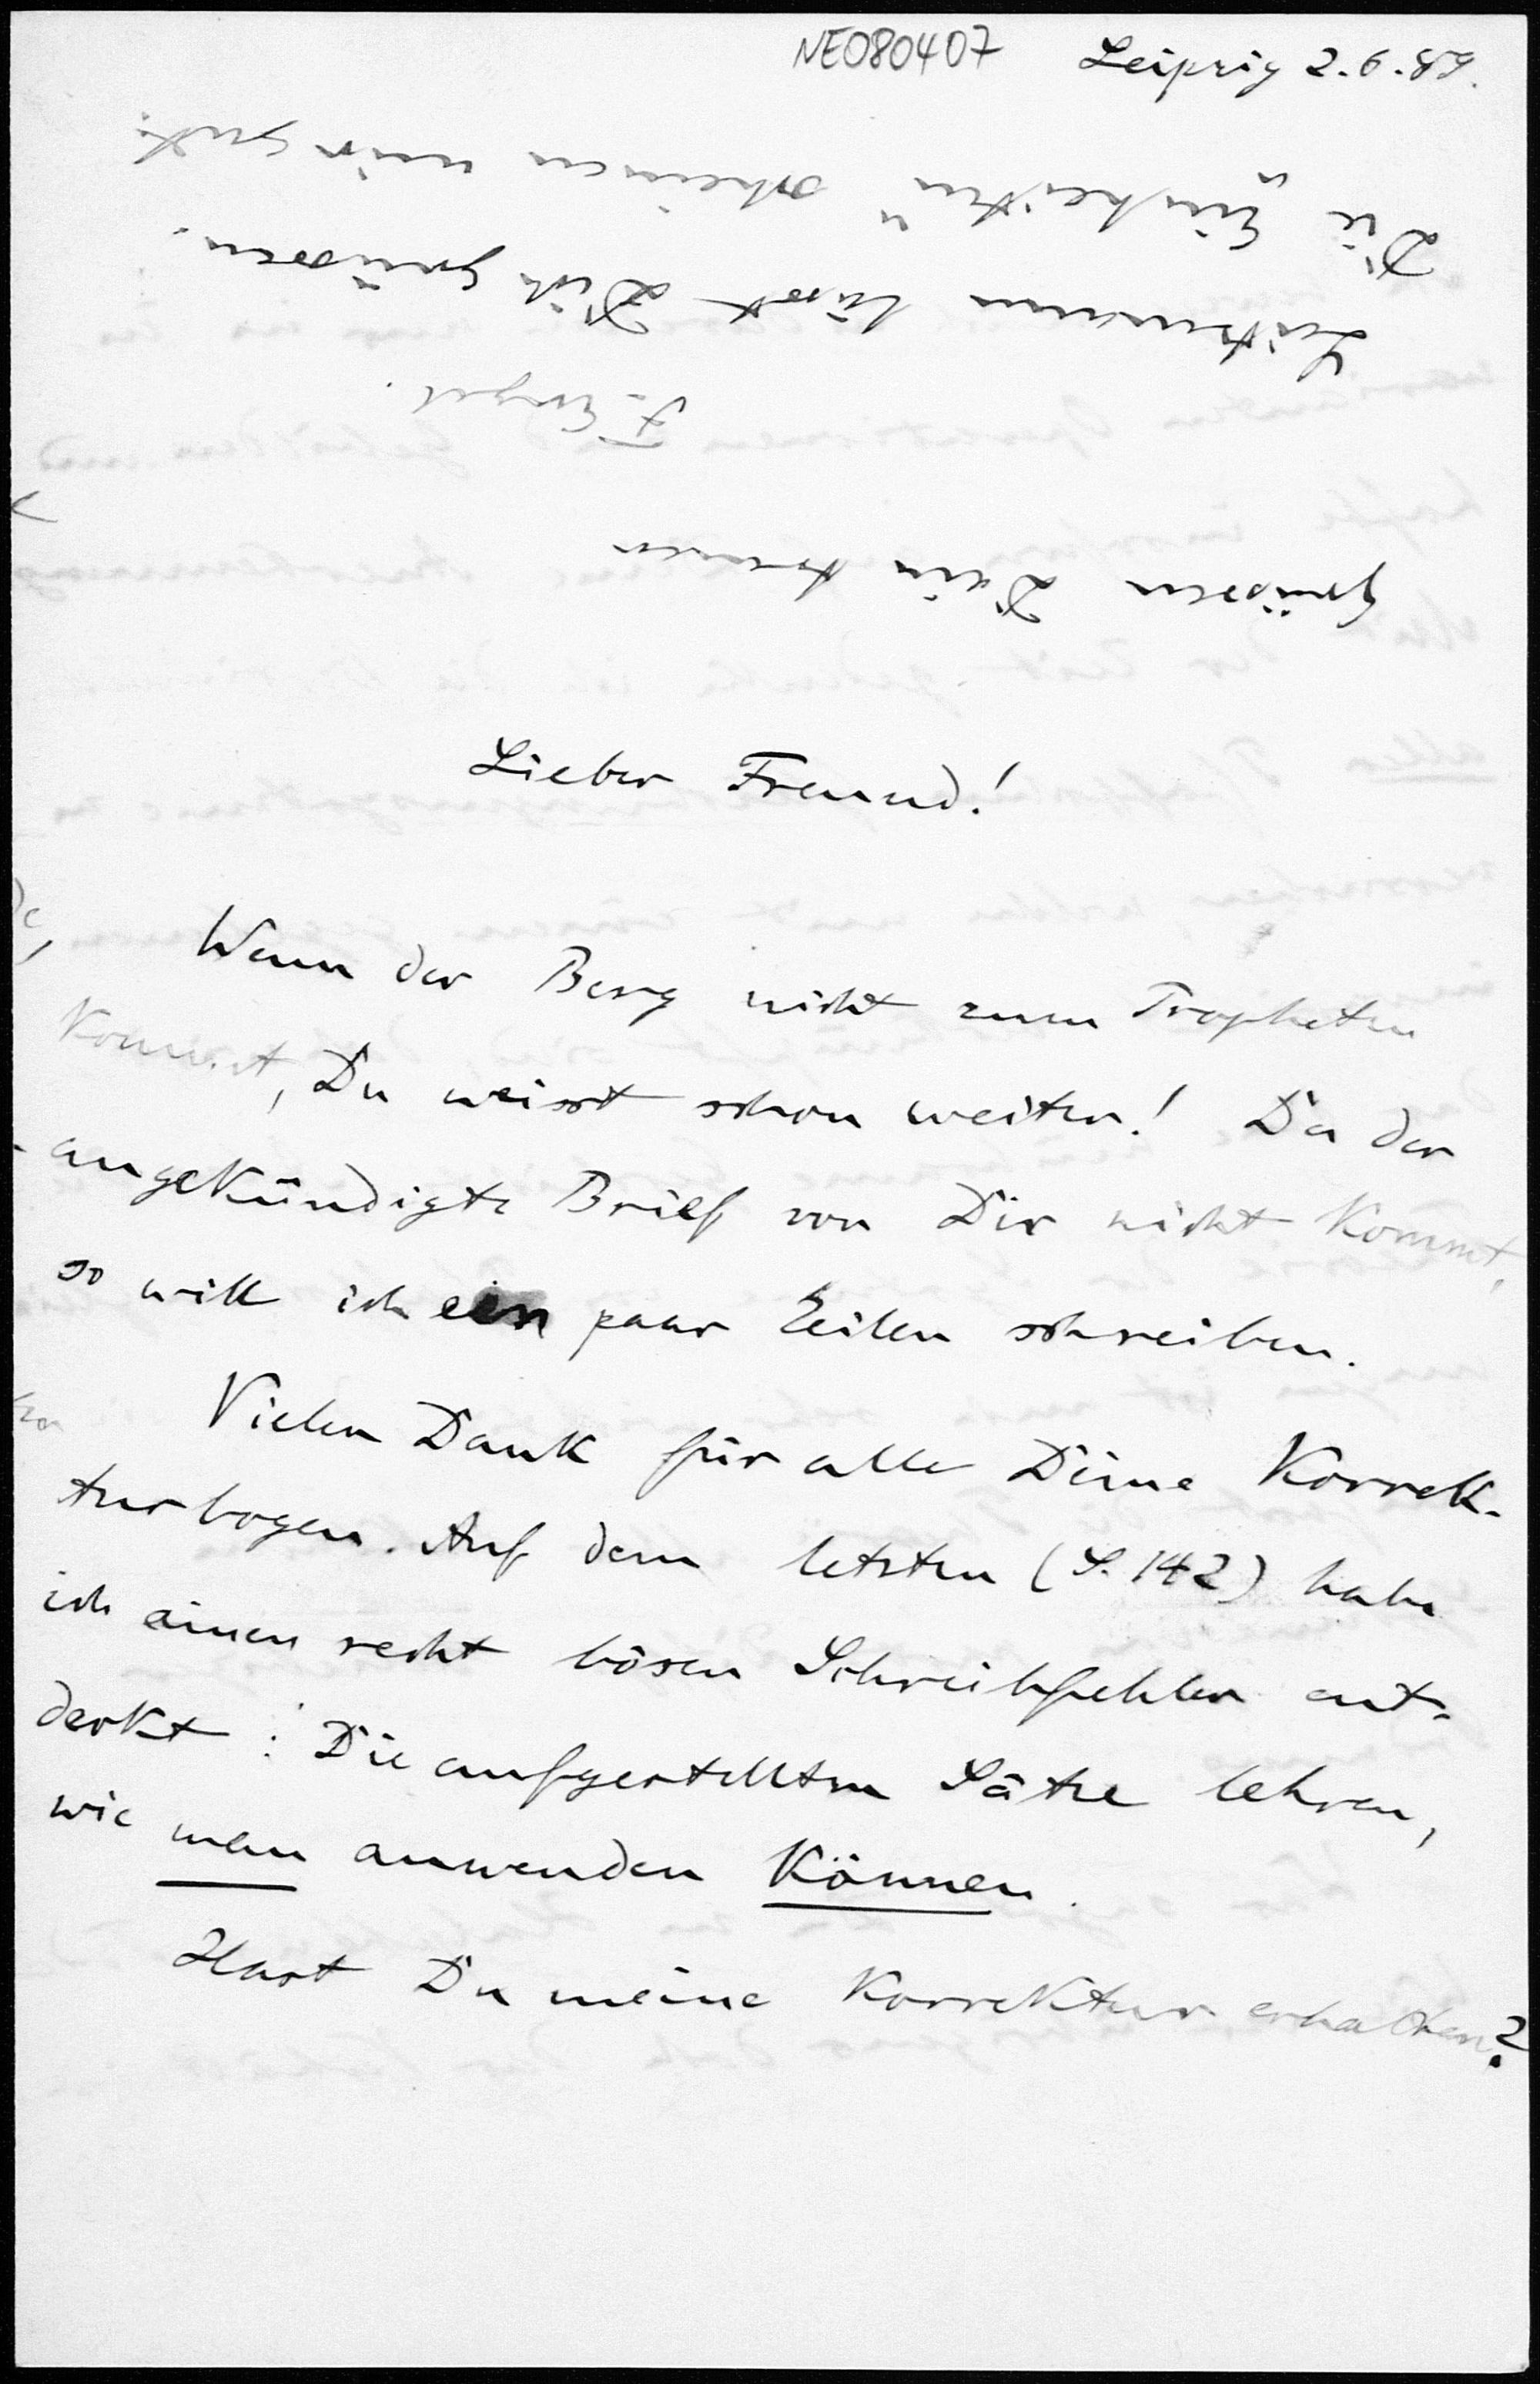 NE080407 Leipzig 2.6.89.
Lieber Freund!
Wenn der Berg nicht zum Propheten
kommt, Du weisst schon weiter! Da der
angekündigte Brief von Dir nicht kommt,
so will ich ein paar Zeilen schreiben.
Vielen Dank für alle Deine Korrek-
turbogen. Auf dem letzten (S. 142) habe
ich einen recht bösen Schreibfehler ent-
deckt: Die aufgestellten Sätze lehren,
wie man anwenden können.
Hast Du meine Korrektur erhalten?
grüssen Dein treuer
F. Engel.
lässt Dich grüssen.
Die "Einheiten" scheinen mir gut.